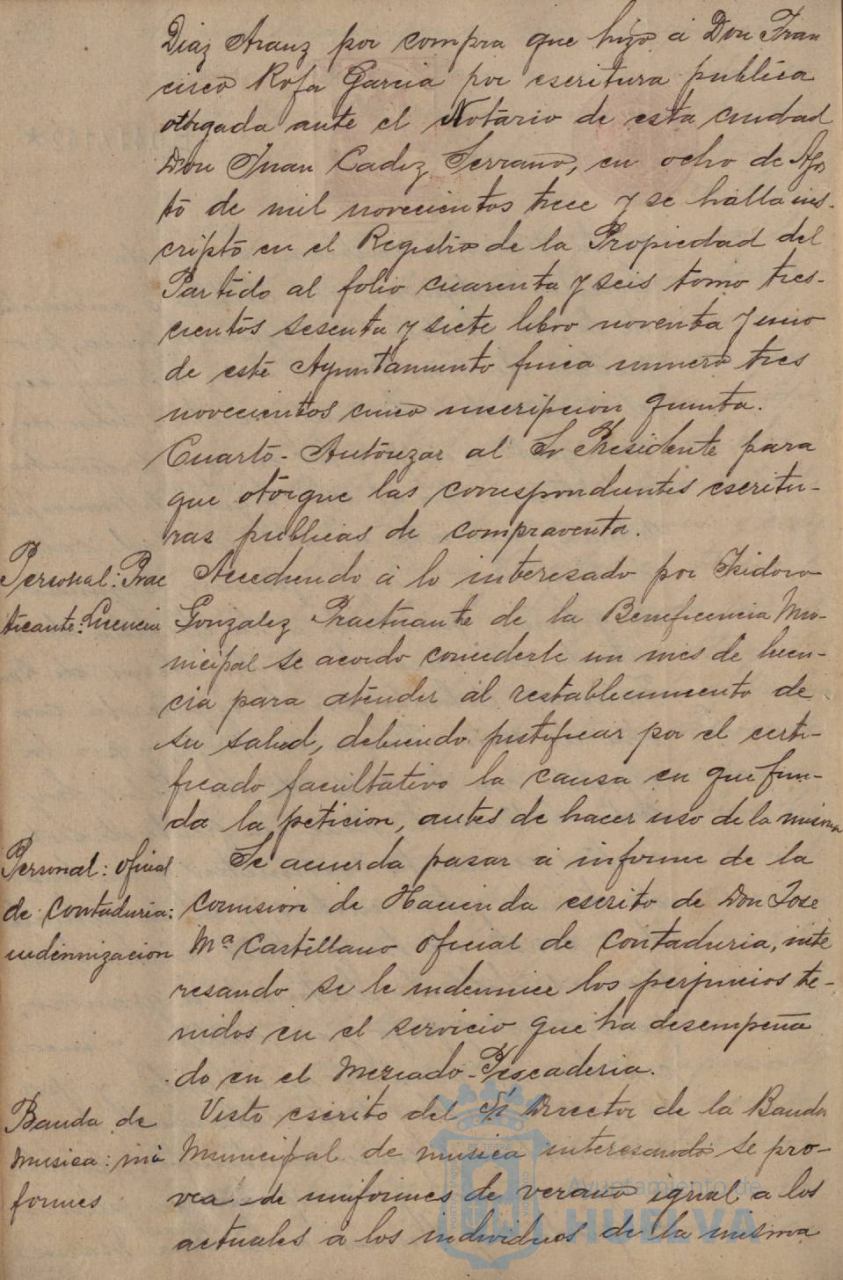 Diaz Aranz por compra que hizo á Don Fran
cisco Rofa Garcia por escritura publica
otorgada ante el Notario de esta ciudad
Don Juan Cadiz Serrano, en ocho de Agos
to de mil novecientos trece y se halla ins-
cripto en el Registro de la Propiedad del
Partido al folio cuarenta y seis tomo tres-
cientos sesenta y siete libro noventa y uno
de este Ayuntamiento finca numero tres
novecientos cinco inscripcion quinta.
Cuarto- Autorizar al Sr Presidente para
que otorgue las correspondientes escritu-
ras publicas de compraventa.
Personal: Prac
ticante: Licencia
Accediendo á lo interesado por Isidoro
Gonzalez Practicante de la Beneficencia Mu-
nicipal se acordo concederle un mes de licen-
cia para atender al restablecimiento de
su salud, debiendo justificar por el certi-
ficado facultativo la causa en que fun-
da la peticion, antes de hacer uso de la misma
Personal: oficial
de contaduria:
indemnizacion
Se acuerda pasar á informe de la
Comision de Hacienda escrito de Don Jose
Mª Castellano oficial de Contaduria, inte
resando se le indemnice los perjuicios te-
nidos en el servicio que ha desempeña
do en el Mercado-Pescaderia.
Banda de
musica: uni
formes
Visto escrito del Sr Director de la Banda
Municipal de musica interesando se pro-
vea de uniformes de verano igual a los
actuales á los individuos de la misma
Ayuntamiento de
HUELVA